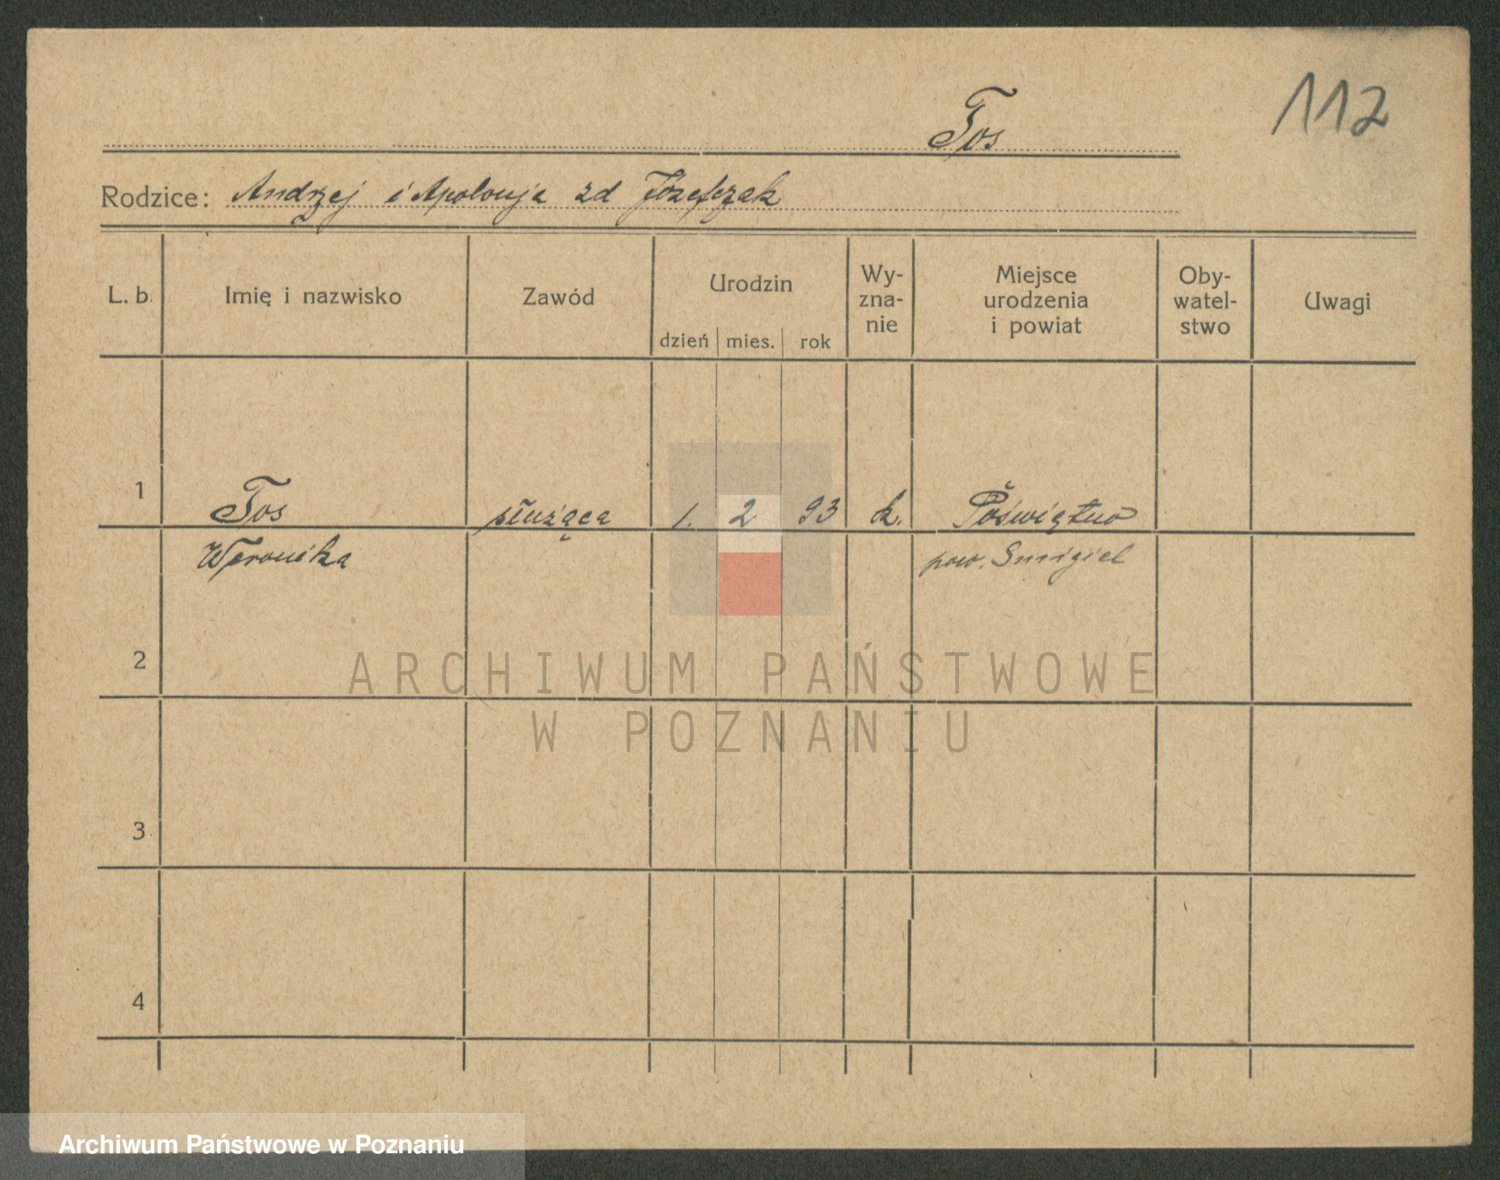 112
Tos
Rodzice: Andrzej i Apolonja zd Józefczak
L. b. Imię i nazwisko Zawód Urodzin dzień mies. rok Wy-zna-nie Miejsce urodzenia i powiat Oby-watel-stwo Uwagi
1 Tos służąca 1. 2 93 k. Poświętno
Weronika pow. Smigiel
2
ARCHIWUM PAŃSTWOWE
W POZNANIU
3
4
Archiwum Państwowe w Poznaniu